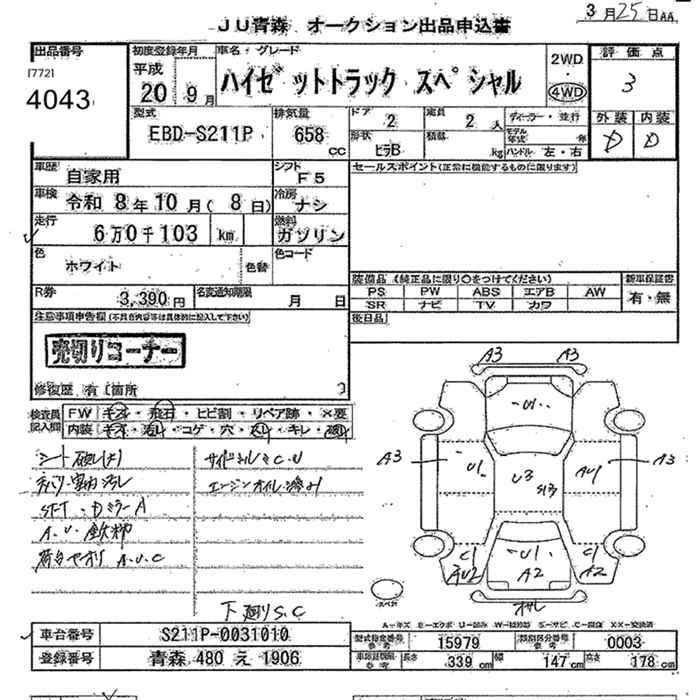 3月25日AA
JU青森 オークション出品申込書
出品番号
[772]
4043
初度登録年月
平成
20 9月
車名・グレード
ハイゼットトラック スペシャル
2WD
・
4WD
評価点
3
外装 内装
D D
型式
EBD-S211P
排気量
658
CC
ドア
2
定員
2 人
ディーラー・並行
モデル年式 年
形状
ピラB
積載
kg
ハンドル 左・右
車歴
自家用
シフト
F5
セールスポイント(正常に機能するものに限ります)
車検
令和 8年 10月( 8日)
冷房
ナシ
走行
6万0千103 km
燃料
ガソリン
色
ホワイト
色替
色コード
装備品 (純正品に限り○をつけてください)
新車保証書
PS PW ABS エアB AW
SR ナビ TV カワ
有・無
R券
3,390円
名変通知期限
月 日
後日品
注意事項申告欄(不具合内容等は具体的に記入して下さい)
売切りコーナー
修復歴 有〔箇所 〕
検査員記入欄
FW キズ・飛石・ヒビ割・リペア跡・×要
内装
コゲ・穴
キレ
A3 A3
U1
A3 U1 U3 AU1 A3
C1 U1 C1
AU2 A2 A2
サイドシルミC.U
エンジンオイル滲み
A.U
A.U.C
下廻りS.C
スペア
A-キズ E-エクボ U-凹み W-補修跡 S-サビ C-腐蝕 XX-交換済
車台番号
S211P-0031010
型式指定番号 参考
15979
類別区分番号 参考
0003
登録番号
青森 480 え 1906
車検証記載 参考
長さ 339 cm
幅 147 cm
高さ 178 cm